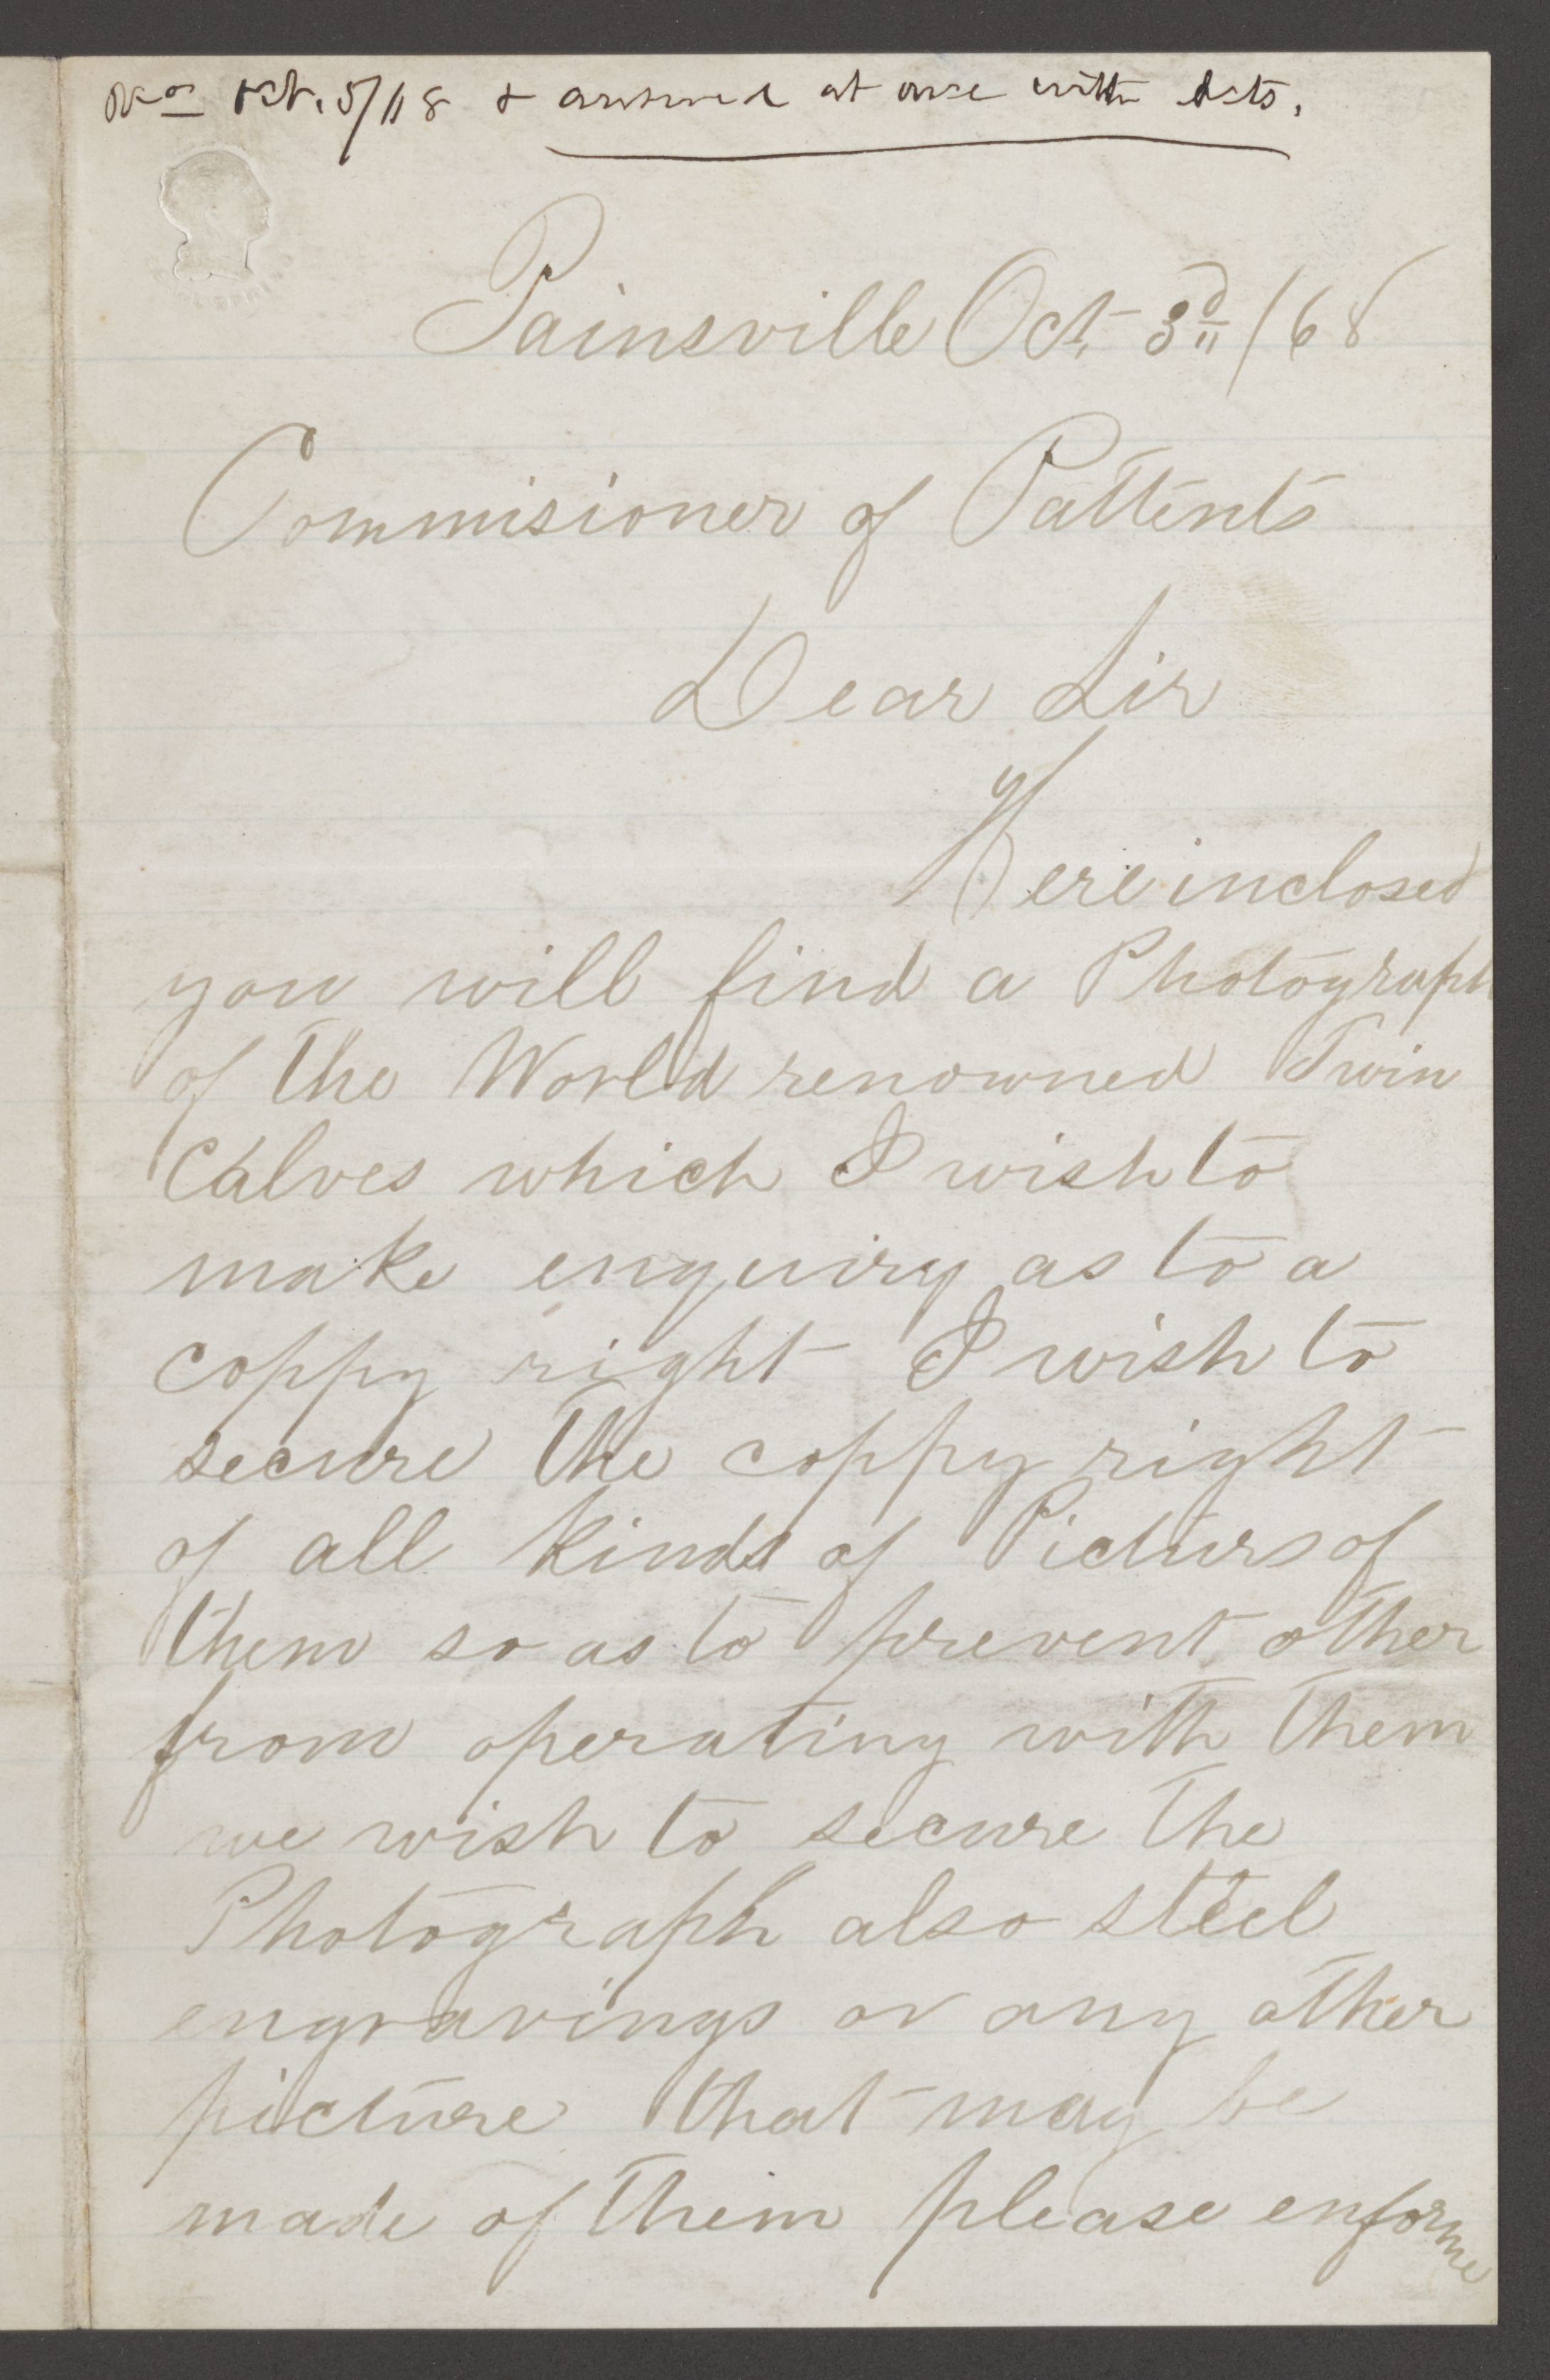 Oct. 5/68 & answered at once with
Painsville Oct. 3d /68
Commisioner of Pattents
Dear Sir
Here inclosed
you will find a Photograph
of the World renowned Twin
Calves which I wish to
make enquiry as to a
coppy right I wish to
secure the coppy right
of all kinds of Picturs of
them so as to prevent other
from operating with them
we wish to secure the
Photograph also steel
engravings or any other
picture that may be
made of them please enforme